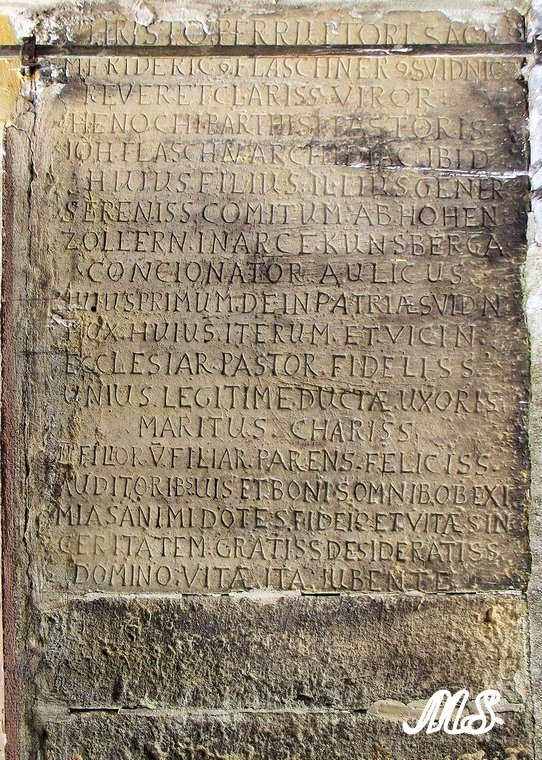 CHRISTO PERRUPTORI SACR
M. FRIDERIC9 FLASCHNER9 SVIDNIC
REVER ET CLARISS. VIROR
HENOCHI BARTHISI PASTORIS
IOH. FLASCHN. ARCHIDIAC. IBID
HUIUS FILIUS. ILLIUS. GENER
SERENISS. COMITUM. AB HOHEN
ZOLLERN. IN ARCE KUNSBERGA
CONCIONATOR AULICUS
HUIUS PRIMUM. DEIN PATRIÆ SVIDN
MOX. HUIUS. ITERUM. ET VICIN.
ECCLESIAR. PASTOR. FIDELISS.
UNIUS LEGITIME DUCTÆ. UXORIS
MARITUS. CHARISS.
FILIOR. V. FILIAR. PARENS. FELICISS.
AUDITORIB. SUIS ET BONIS OMNIB. OB EXI
MIAS ANIMI DOTES. FIDEIQ. ET VITÆ SIN
CERITATEM. GRATISS DESIDERATISS.
DOMINO. VITÆ ITA. IUBENTE.
MS.